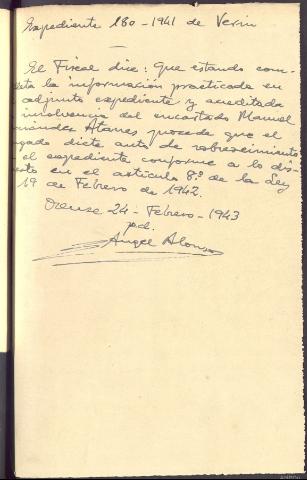 Expediente 180-1941 de Verin
El Fiscal dice: que estando com-
leta la información practicada en
adjunto expediente y acreditada
insolvencia del encartado Manuel
Atanes procede que el
gado dicte auto de sobreseimiento
el expediente conforme a lo dis-
esto en el artículo 8º de la Ley
19 de Febrero de 1942.
Orense 24-Febrero-1943
p.d.
Angel Alonso